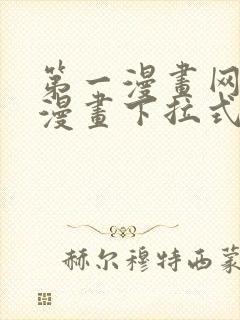 第一漫畫网
漫畫下拉式
赫尔穆特西蒙